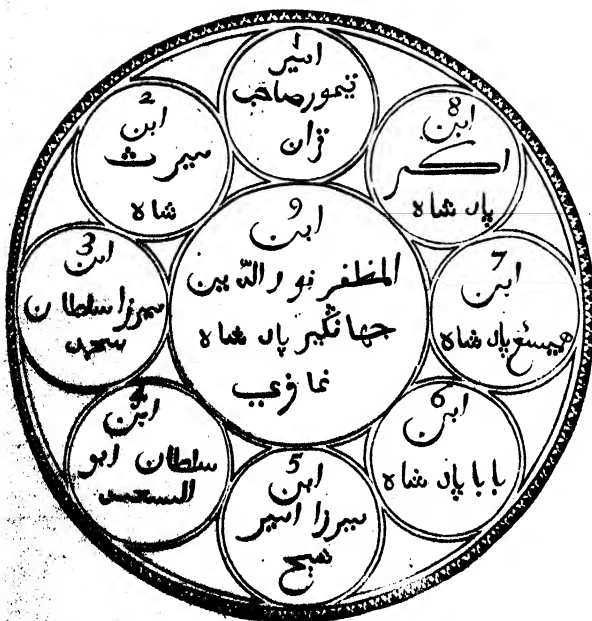 1
امير
تيمور صاحب
قران
2
ابن
ميرث
شاه
3
ابن
ميرزا سلطان
محمد
4
ابن
سلطان ابو
السعيد
5
ابن
ميرزا امير
شيخ
6
ابن
بابا پاد شاه
7
ابن
پاد شاه
8
ابن
اكبر
پاد شاه
9
ابن
المظفر نور الدين
جهانگير پاد شاه
غازي